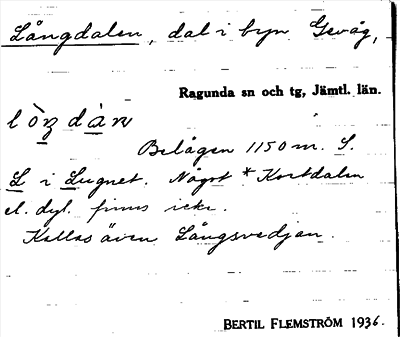 Långdalen, dal i byn Gevåg,
Ragunda sn och tg, Jämtl. län.
lò̱ŋdà̱n
Belägen 1150 m. S.
L i Lugnet. Något *Kortdalen
el. dyl. finns icke.
Kallas även Långsvedjan.
BERTIL FLEMSTRÖM 1936.